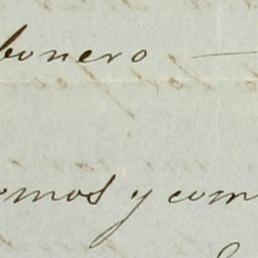 bonero —
omos y com